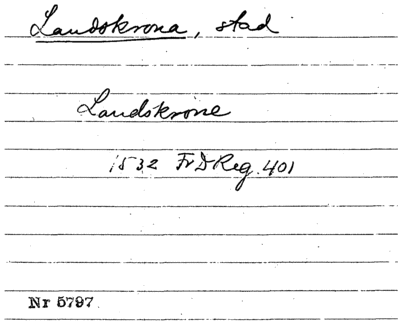 Landskrona, stad
Landskrone
1532 FrDReg. 401
Nr 5797